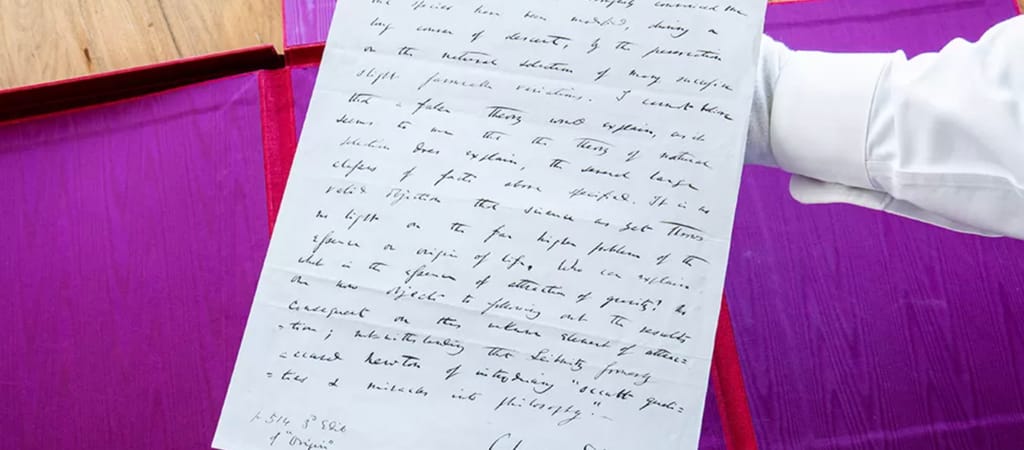 convinced me
that species have been modified, during a
long course of descent, by the preservation
or the natural selection of many successive
slight favourable variations. I cannot believe
that a false theory would explain, as it
seems to me that the theory of natural
selection does explain, the several large
classes of facts above specified. It is no
valid objection that science as yet throws
no light on the far higher problem of the
essence or origin of life. Who can explain
what is the essence of attraction of gravity? No
one now objects to following out the results
consequent on this unknown element of attrac=
=tion; notwithstanding that Leibnitz formerly
accused Newton of introducing "occult quali=
=ties & miracles into philosophy" —
p. 514 3d Edit
of "Origin"